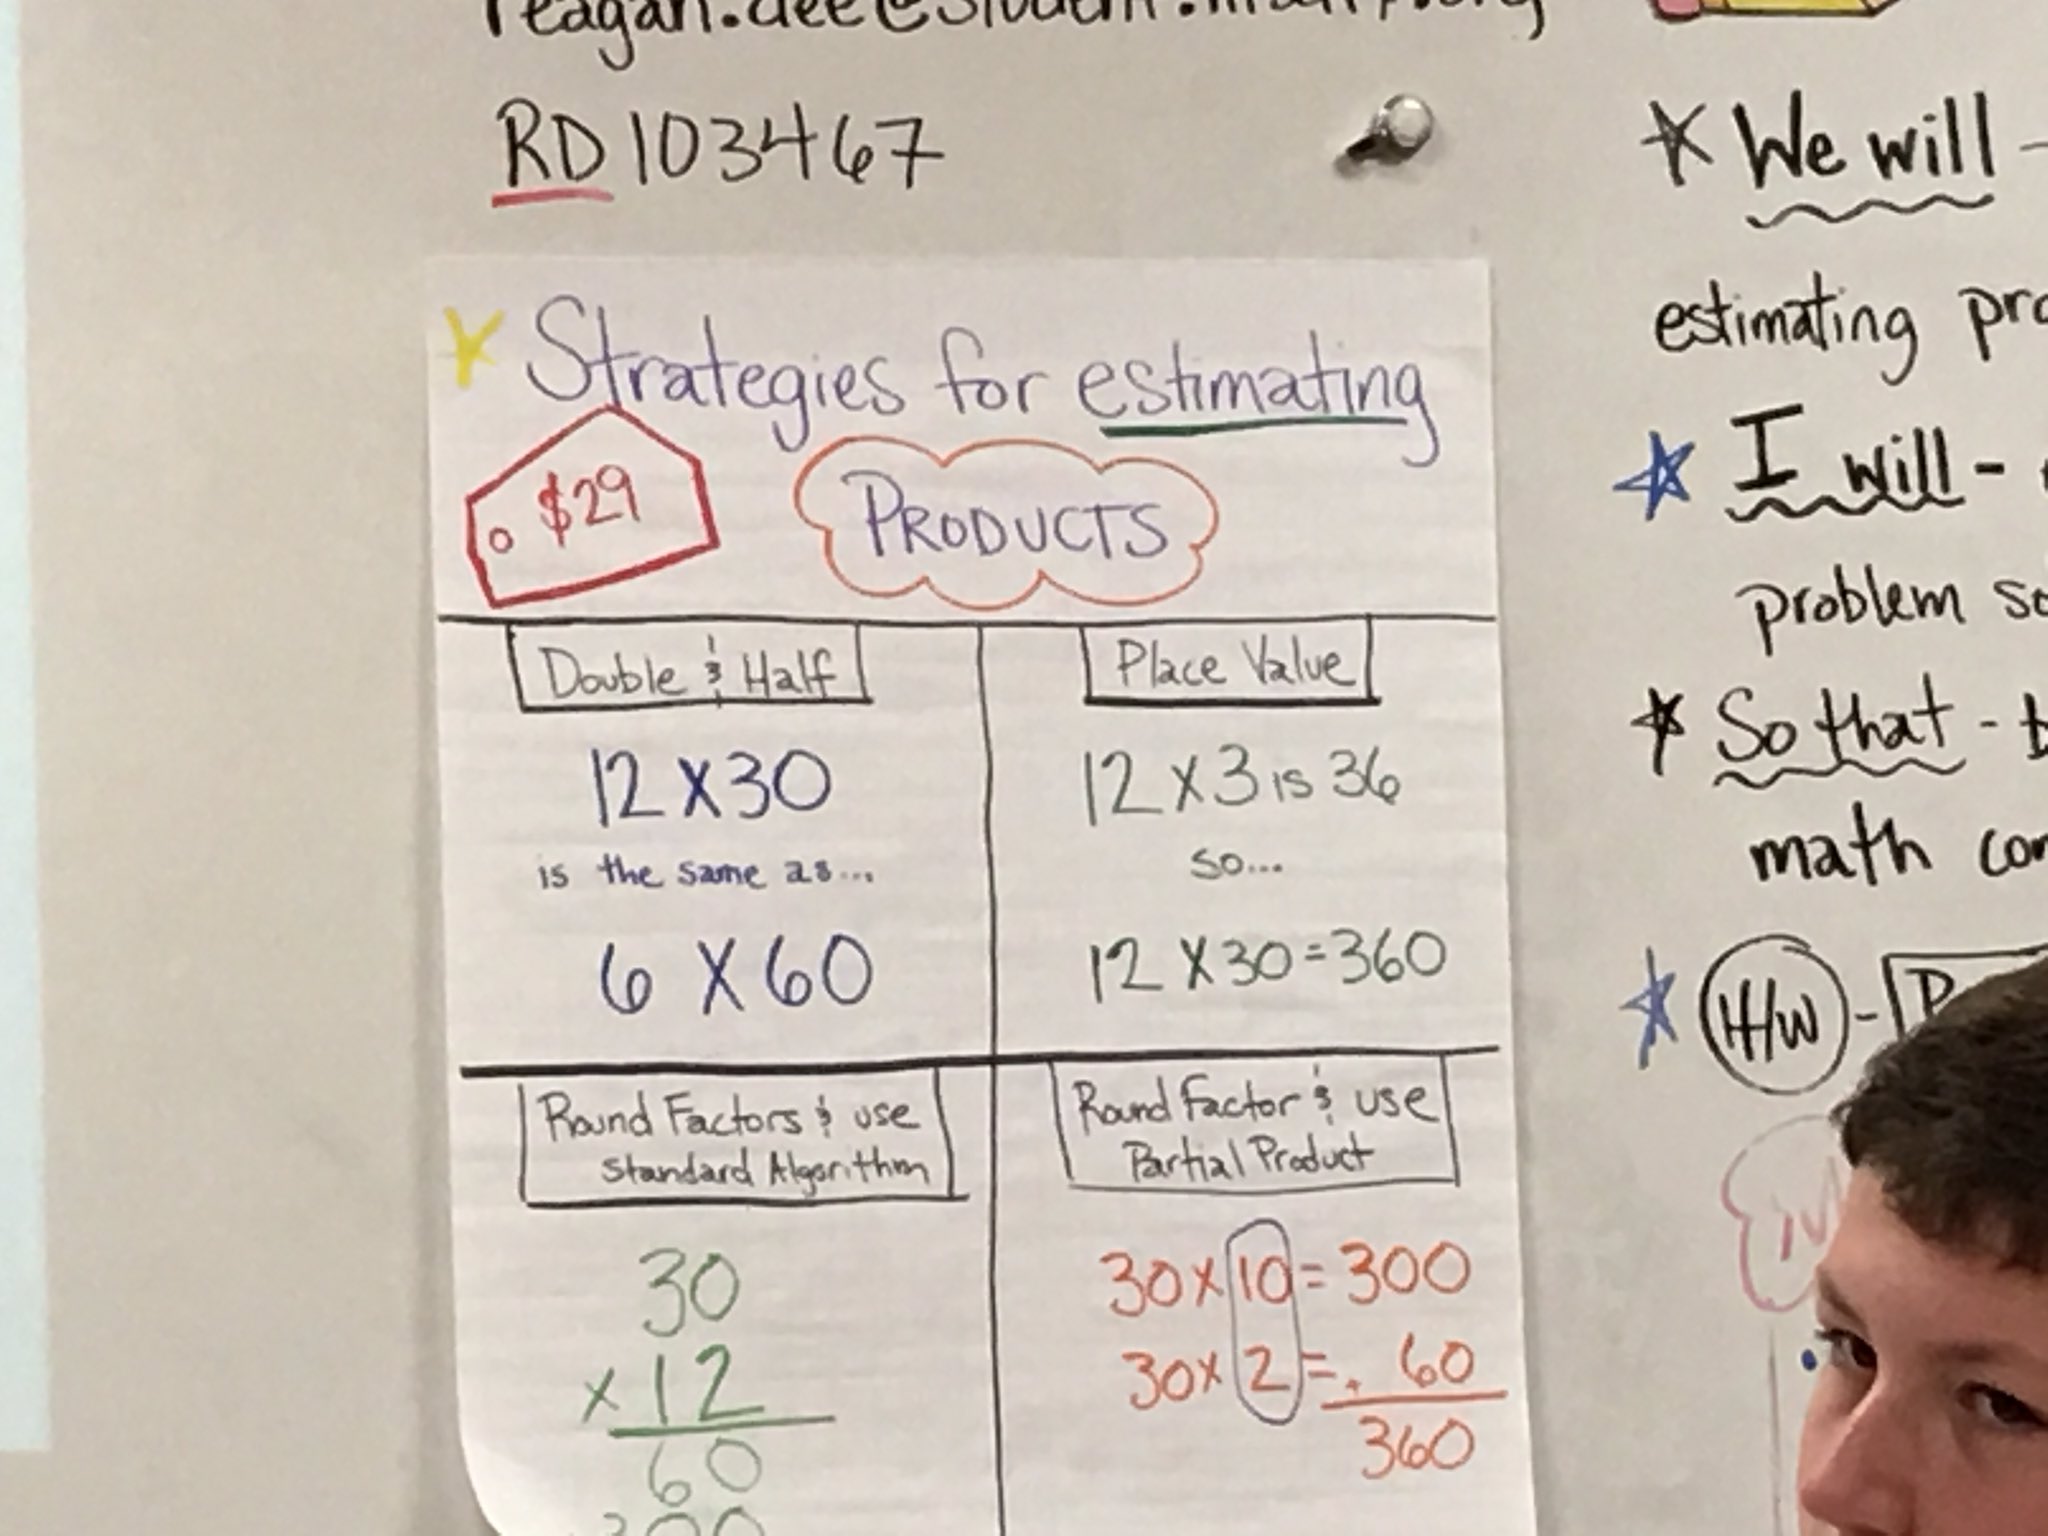 RD103467
Strategies for estimating
$29
PRODUCTS
Double & Half
12 x 30
is the same as...
6 x 60
Place Value
12 x 3 is 36
so...
12 x 30 = 360
Round Factors & use
Standard Algorithm
30
x 12
60
Round Factor & use
Partial Product
30 x 10 = 300
30 x 2 = 60
360
We will -
estimating
I will -
problem
So that -
math
H/W -